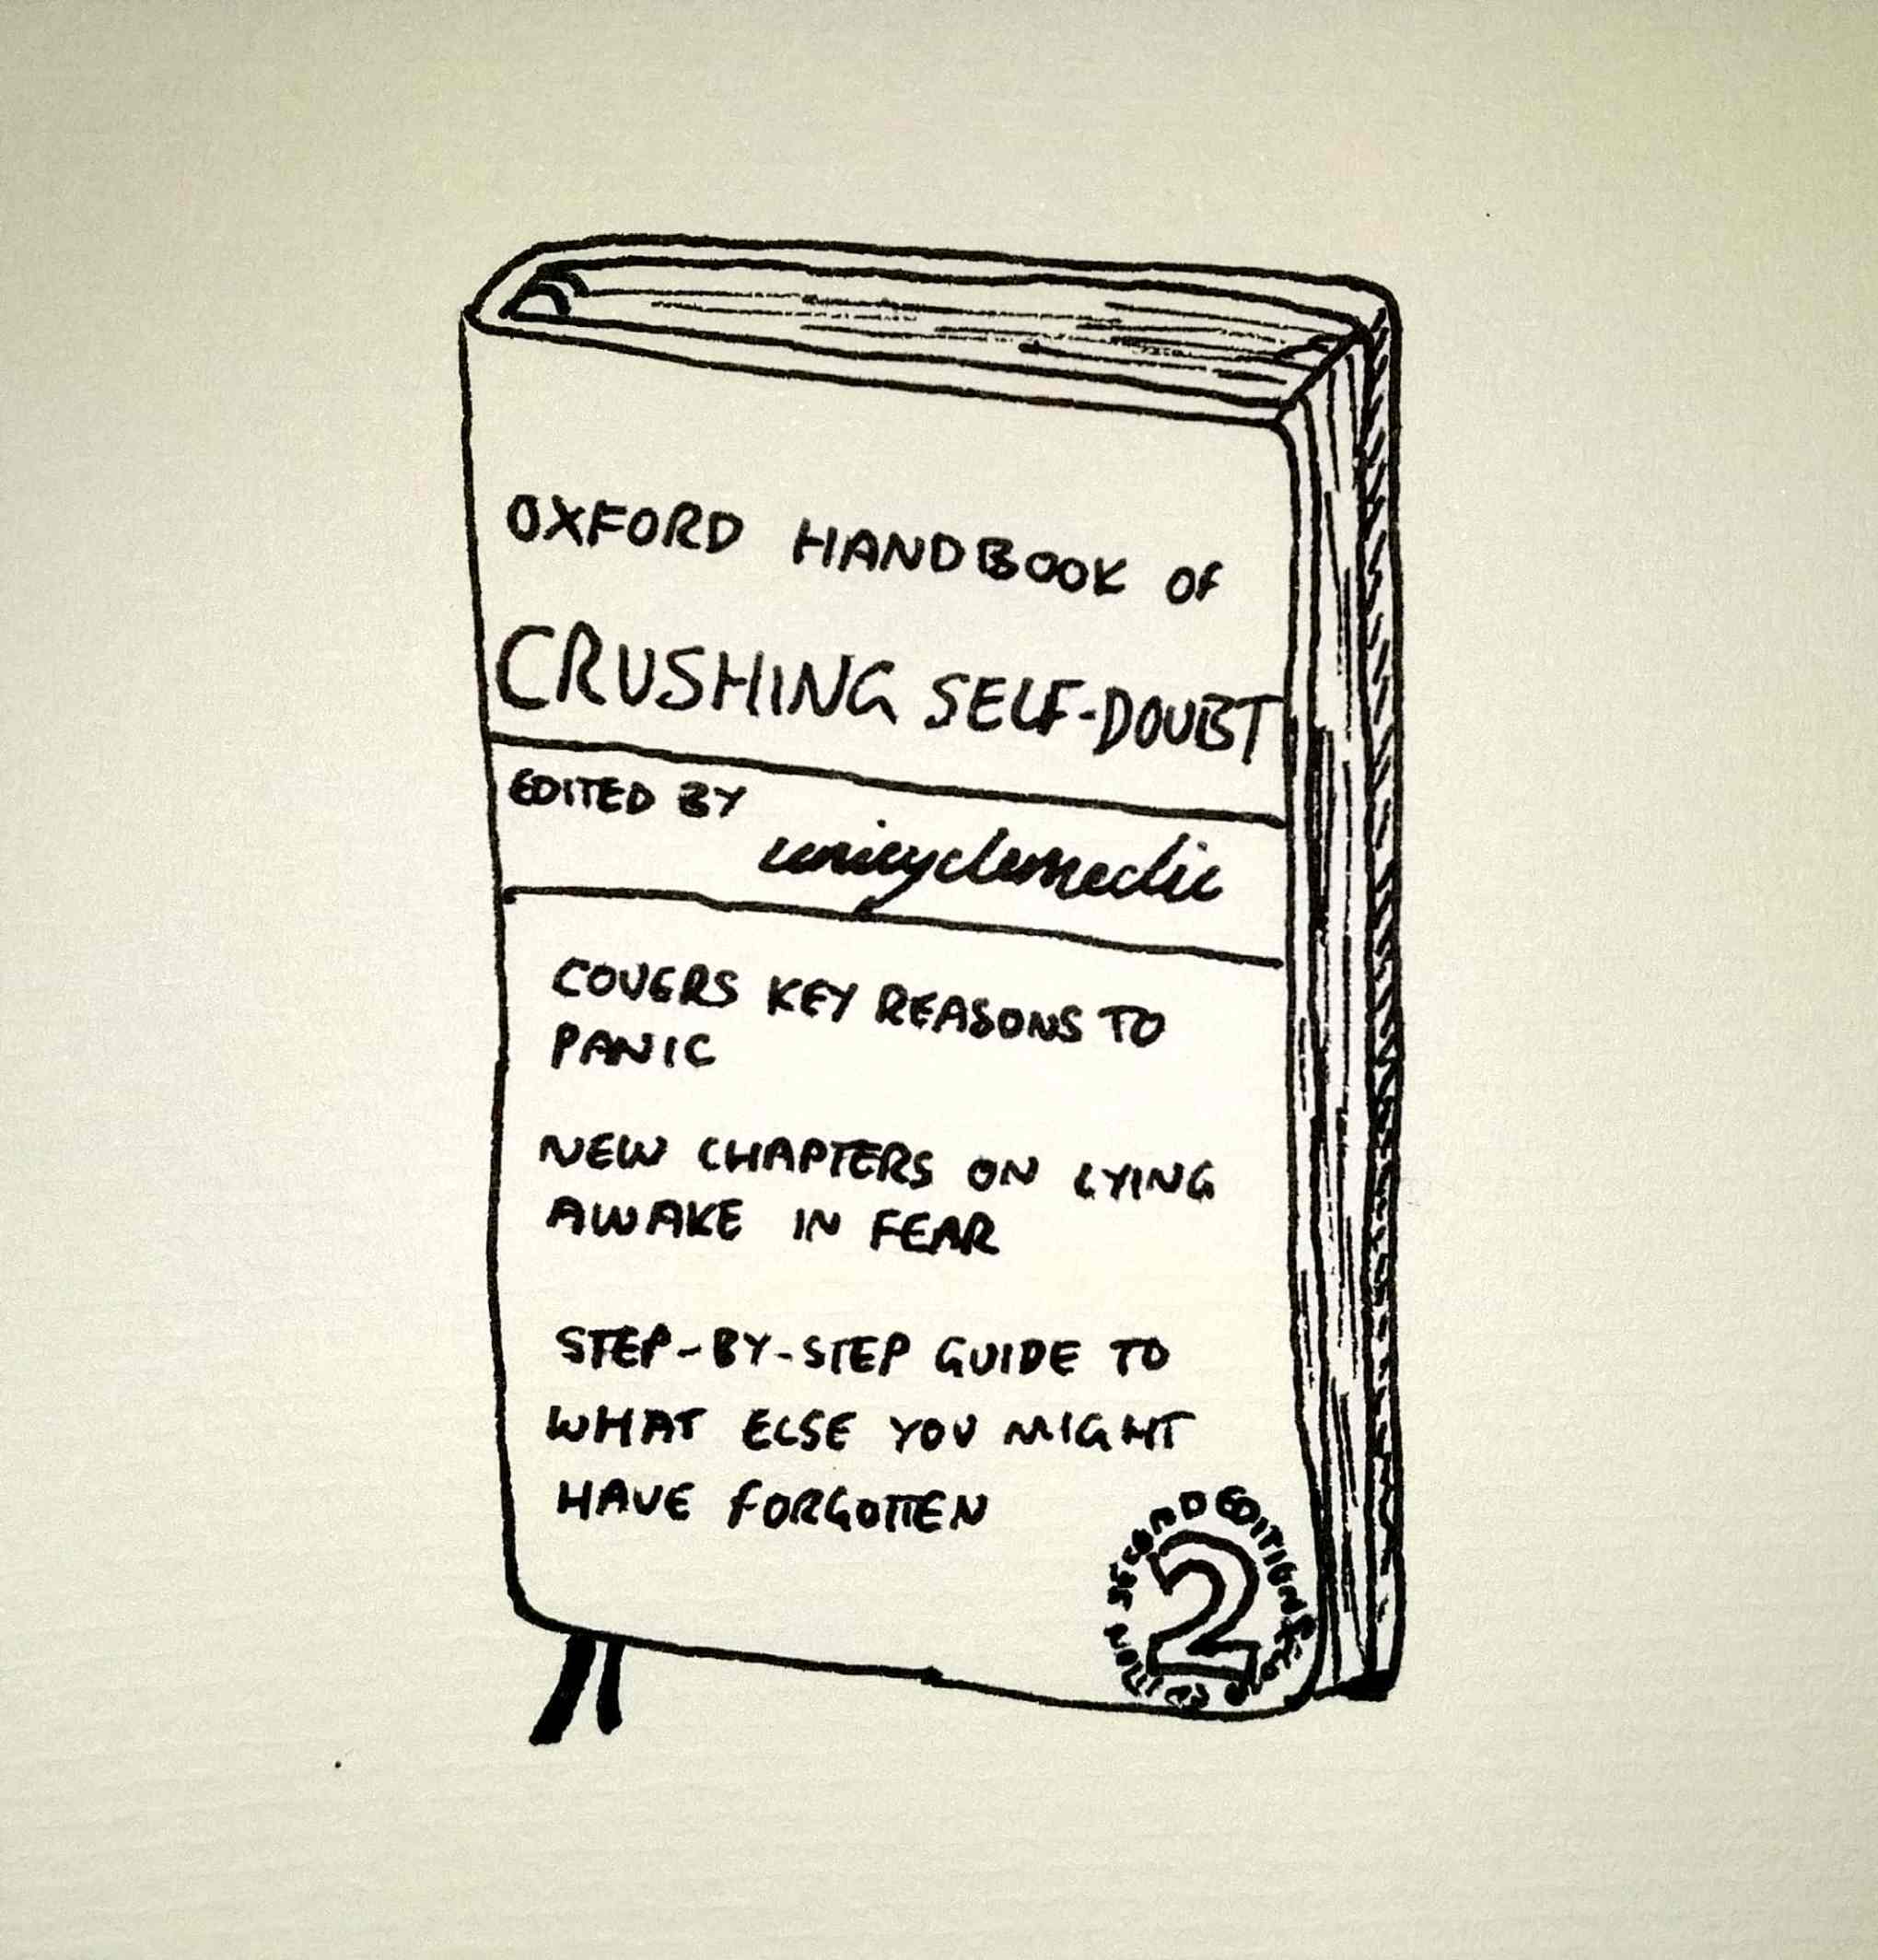 OXFORD HANDBOOK OF
CRUSHING SELF-DOUBT
EDITED BY
unicyclemedic
COVERS KEY REASONS TO
PANIC
NEW CHAPTERS ON LYING
AWAKE IN FEAR
STEP-BY-STEP GUIDE TO
WHAT ELSE YOU MIGHT
HAVE FORGOTTEN
SECOND EDITION
2